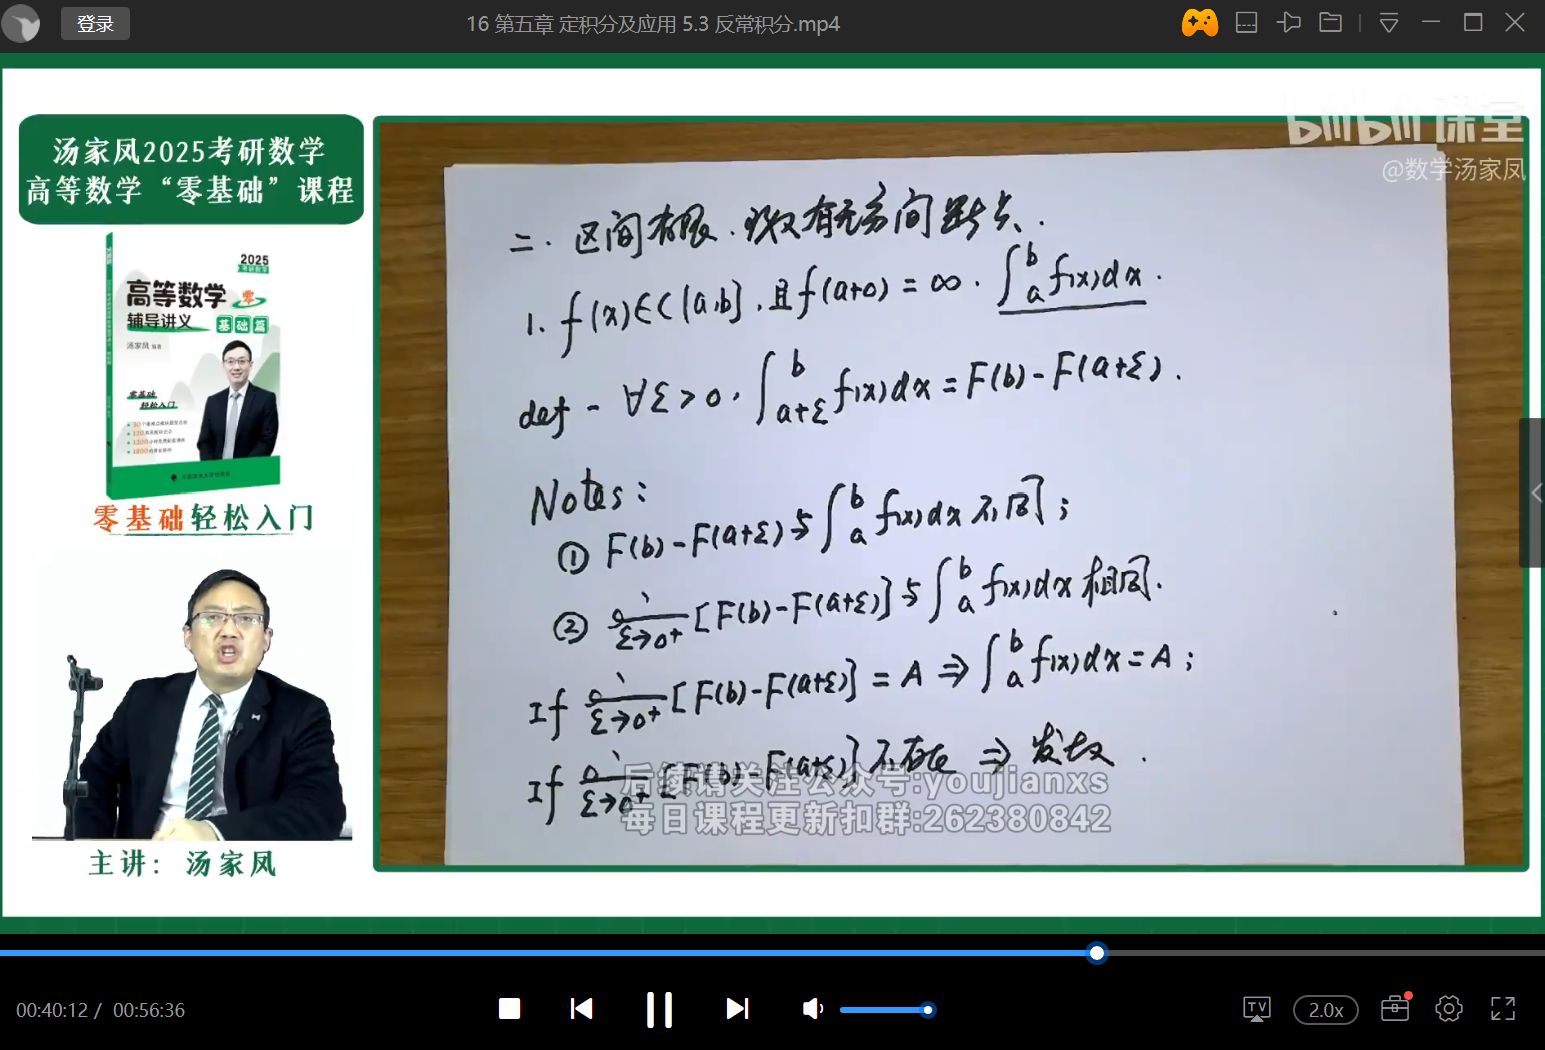 登录
16 第五章 定积分及应用 5.3 反常积分.mp4
bilibili 课堂
@数学汤家凤
汤家凤2025考研数学
高等数学“零基础”课程
2025
考研数学
高等数学 零
辅导讲义 基础篇
汤家凤 编著
零基础
轻松入门
零基础轻松入门
主讲：汤家凤
二. 区间有限. 函数有无穷间断点.
1. f(x)∈C(a,b], 且f(a+0)=∞. ∫_a^b f(x)dx.
def - ∀ε>0, ∫_{a+ε}^b f(x)dx=F(b)-F(a+ε).
Notes:
① F(b)-F(a+ε)与∫_a^b f(x)dx不同;
② lim_{ε→0+}[F(b)-F(a+ε)]与∫_a^b f(x)dx相同.
If lim_{ε→0+}[F(b)-F(a+ε)]=A ⇒ ∫_a^b f(x)dx=A;
If lim_{ε→0+}[F(b)-F(a+ε)]不存在 ⇒ 发散.
后续请关注公众号:youjianxs
每日课程更新扣群:262380842
00:40:12 / 00:56:36
TV
2.0x